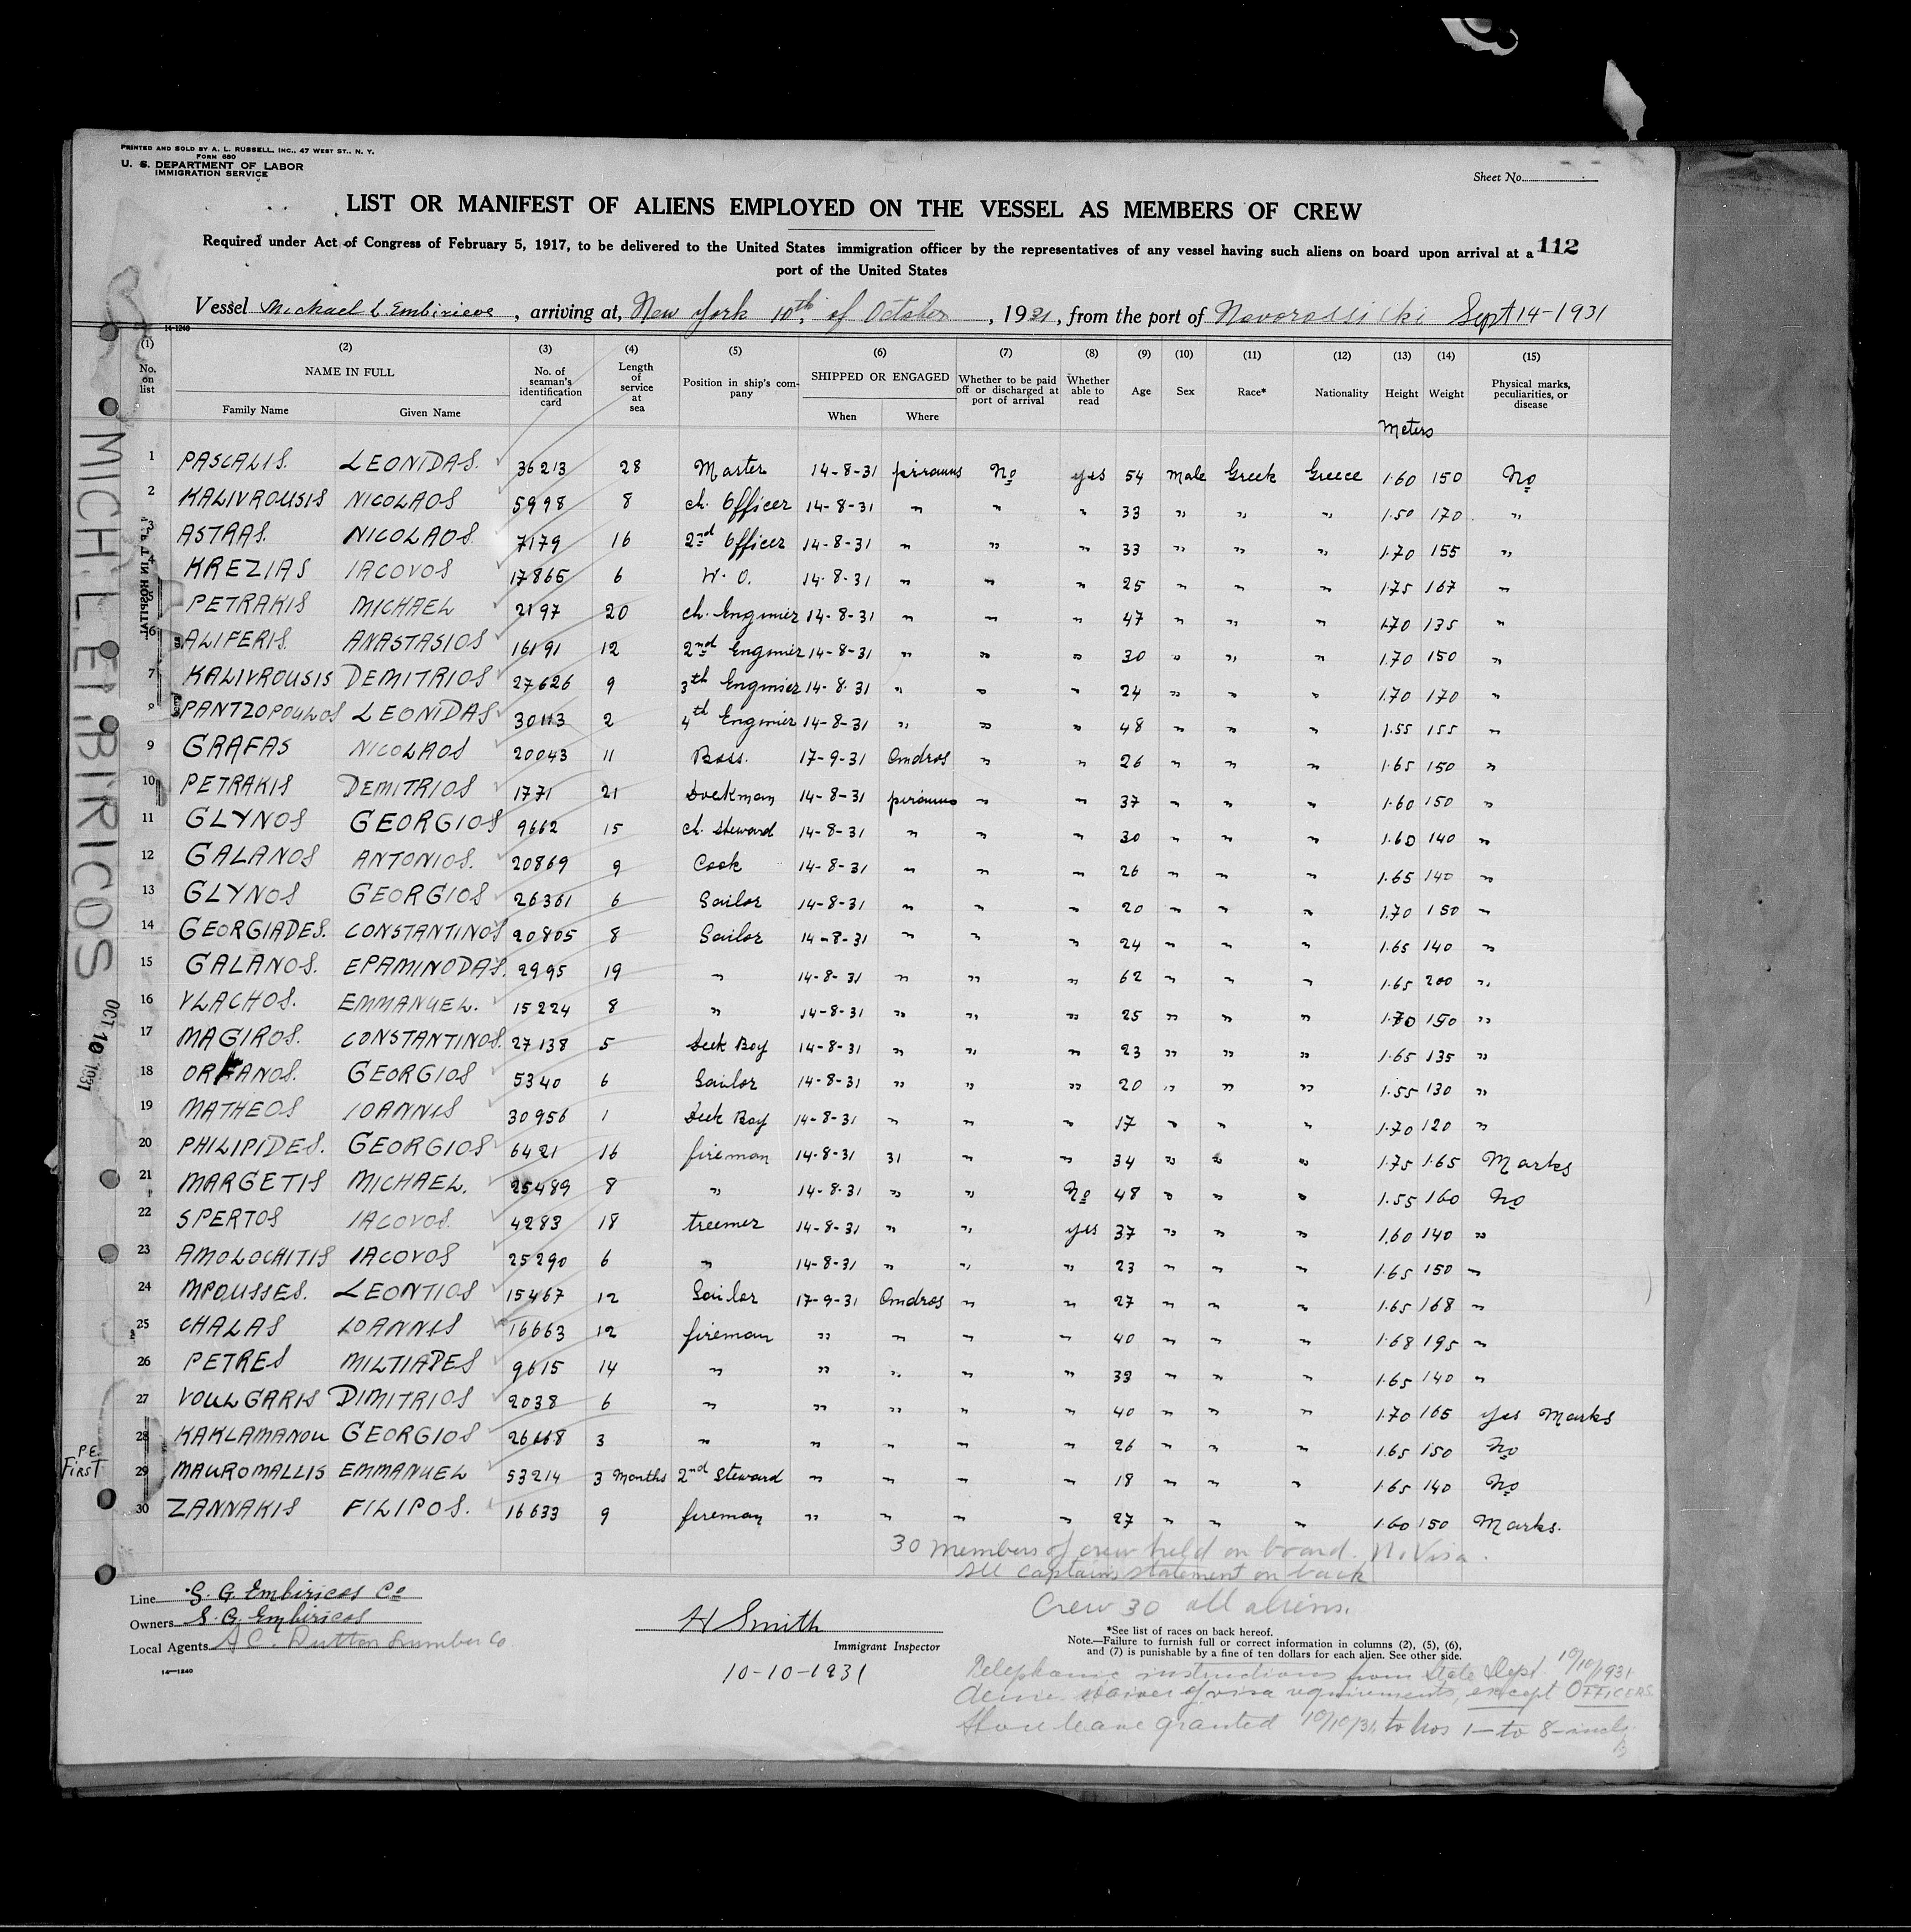 PRINTED AND SOLD BY A. L. RUSSELL, INC., 47 WEST ST., N. Y.
FORM 680
U. S. DEPARTMENT OF LABOR
IMMIGRATION SERVICE
Sheet No.
LIST OR MANIFEST OF ALIENS EMPLOYED ON THE VESSEL AS MEMBERS OF CREW
Required under Act of Congress of February 5, 1917, to be delivered to the United States immigration officer by the representatives of any vessel having such aliens on board upon arrival at a 112
port of the United States
Vessel Michael L Embiricos, arriving at, New York 10th, of October, 1931, from the port of Novorossiski Sept 14-1931
14-1240
(1) No. on list (2) NAME IN FULL Family Name Given Name (3) No. of seaman's identification card (4) Length of service at sea (5) Position in ship's company (6) SHIPPED OR ENGAGED When Where (7) Whether to be paid off or discharged at port of arrival (8) Whether able to read (9) Age (10) Sex (11) Race* (12) Nationality (13) Height (14) Weight (15) Physical marks, peculiarities, or disease
Meters
1 PASCALIS. LEONIDAS. 36213 28 Master 14-8-31 piraeus No yes 54 Male Greek Greece 1.60 150 No
2 KALIVROUSIS NICOLAOS 5998 8 ch. Officer 14-8-31 " " " 33 " " " 1.50 170 "
3 ASTRAS. NICOLAOS 7179 16 2nd Officer 14-8-31 " " " 33 " " " 1.70 155 "
4 KREZIAS IACOVOS 17865 6 W. O. 14-8-31 " " " 25 " " " 1.75 167 "
5 PETRAKIS MICHAEL 2197 20 ch. Enginier 14-8-31 " " " 47 " " " 1.70 135 "
6 ALIFERIS. ANASTASIOS 16191 12 2nd Enginier 14-8-31 " " " 30 " " " 1.70 150 "
7 KALIVROUSIS DEMITRIOS 27626 9 3th Enginier 14-8-31 " " " 24 " " " 1.70 170 "
8 PANTZOPOULOS LEONIDAS 30113 2 4th Enginier 14-8-31 " " " 48 " " " 1.55 155 "
9 GRAFAS NICOLAOS 20043 11 Boss. 17-9-31 Andros " " 26 " " " 1.65 150 "
10 PETRAKIS DEMITRIOS 1771 21 Dockman 14-8-31 piraeus " " 37 " " " 1.60 150 "
11 GLYNOS GEORGIOS 9662 15 ch. Steward 14-8-31 " " " 30 " " " 1.60 140 "
12 GALANOS ANTONIOS. 20869 9 Cook 14-8-31 " " " 26 " " " 1.65 140 "
13 GLYNOS GEORGIOS 26361 6 Sailor 14-8-31 " " " 20 " " " 1.70 150 "
14 GEORGIADES. CONSTANTINOS 20805 8 Sailor 14-8-31 " " " 24 " " " 1.65 140 "
15 GALANOS. EPAMINODAS. 2995 19 " 14-8-31 " " " 62 " " " 1.65 200 "
16 VLACHOS. EMMANUEL. 15224 8 " 14-8-31 " " " 25 " " " 1.70 150 "
17 MAGIROS. CONSTANTINOS. 27138 5 Deck Boy 14-8-31 " " " 23 " " " 1.65 135 "
18 ORFANOS. GEORGIOS 5340 6 Sailor 14-8-31 " " " 20 " " " 1.55 130 "
19 MATHEOS IOANNIS 30956 1 Deck Boy 14-8-31 " " " 17 " " " 1.70 120 "
20 PHILIPIDES. GEORGIOS 6421 16 fireman 14-8-31 31 " " 34 " " " 1.75 1.65 Marks
21 MARGETIS MICHAEL. 25489 8 " 14-8-31 " " No 48 " " " 1.55 160 No
22 SPERTOS IACOVOS 4283 18 treemer 14-8-31 " " yes 37 " " " 1.60 140 "
23 AMOLOCHITIS IACOVOS 25290 6 " 14-8-31 " " " 23 " " " 1.65 150 "
24 MPOUSSES. LEONTIOS 15467 12 Sailor 17-9-31 Andros " " 27 " " " 1.65 168 "
25 CHALAS IOANNIS 16663 12 fireman " " " " 40 " " " 1.68 195 "
26 PETRES MILTIADES 9615 14 " " " " " 39 " " " 1.65 140 "
27 VOULGARIS DIMITRIOS 2038 6 " " " " " 40 " " " 1.70 165 yes Marks
28 KAKLAMANOU GEORGIOS 3 " " " " " 26 " " " 1.65 150 No
29 MAUROMALLIS EMMANUEL 53214 3 Months 2nd Steward " " " " 18 " " " 1.65 140 No
30 ZANNAKIS FILIPOS. 16633 9 fireman " " " " 27 " " " 1.60 150 Marks.
30 Members of crew held on board. No Visa.
See Captains statement on back
Crew 30 all aliens.
MICH. L. EMBIRICOS
OCT 10 1931
IN HOSPITAL
P.E. FIRST
Line S. G. Embiricos Co
Owners S. G. Embiricos
Local Agents A C. Dutton Lumber Co
14-1240
H Smith
Immigrant Inspector
10-10-1931
*See list of races on back hereof.
Note.—Failure to furnish full or correct information in columns (2), (5), (6),
and (7) is punishable by a fine of ten dollars for each alien. See other side.
Telephonic instructions from State Dept 10/10/1931
waiver of visa requirements, except OFFICERS.
Shore leave granted 10/10/31 to nos 1- to 8-incl.